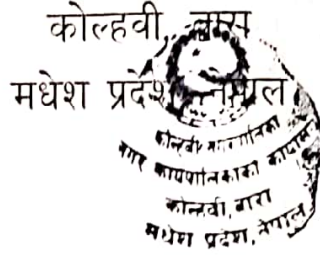 कोल्हवी,
मधेश प्रदेश नेपाल
कोल्हवी नगरपालिका
नगर कार्यपालिकाको कार्यालय
कोल्हवी, बारा
मधेश प्रदेश, नेपाल